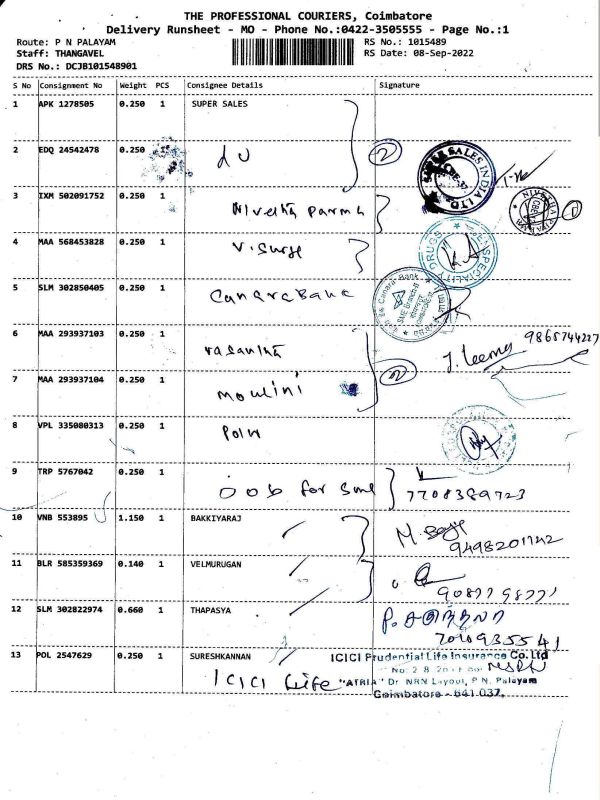 THE PROFESSIONAL COURIERS, Coimbatore
Delivery Runsheet - MO - Phone No.:0422-3505555 - Page No.:1
Route: P N PALAYAM
Staff: THANGAVEL
DRS No.: DCJB101548901
RS No.: 1015489
RS Date: 08-Sep-2022
S No Consignment No Weight PCS Consignee Details Signature
1 APK 1278505 0.250 1 SUPER SALES
2 EDQ 24542478 0.250 1 2
SUPER SALES INDIA LTD
3 IXM 502091752 0.250 1 Nivetha
4 MAA 568453828 0.250 1 V. Surge
SPECIALITY DRUGS
5 SLM 302850405 0.250 1 Canara Bank
Canara Bank
SME Branch
6 MAA 293937103 0.250 1 Vasantha 9865744227
7 MAA 293937104 0.250 1 Moulini 2
8 VPL 335080313 0.250 1
9 TRP 5767042 0.250 1 for 7708389723
10 VNB 553895 1.150 1 BAKKIYARAJ
9498201142
11 BLR 585359369 0.140 1 VELMURUGAN
12 SLM 302822974 0.660 1 THAPASYA
13 POL 2547629 0.250 1 SURESHKANNAN ICICI Prudential Life Insurance Co. Ltd
ICICI Life "ATRIA" Dr NRN Layout, P.N. Palayam
Coimbatore - 641 037.